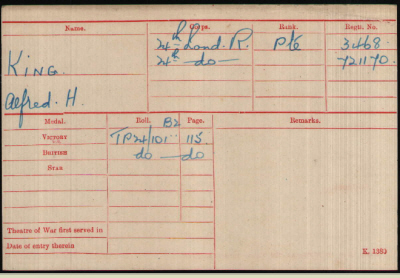 Name. Corps. Rank. Regtl. No.
24th Lond. R. Pte 3468.
King. 24th -do- 721170.
Alfred. H.
Medal. Roll. Page. Remarks.
B2
Victory TP24/101 115
British do do
Star
Theatre of War first served in
Date of entry therein K. 1380